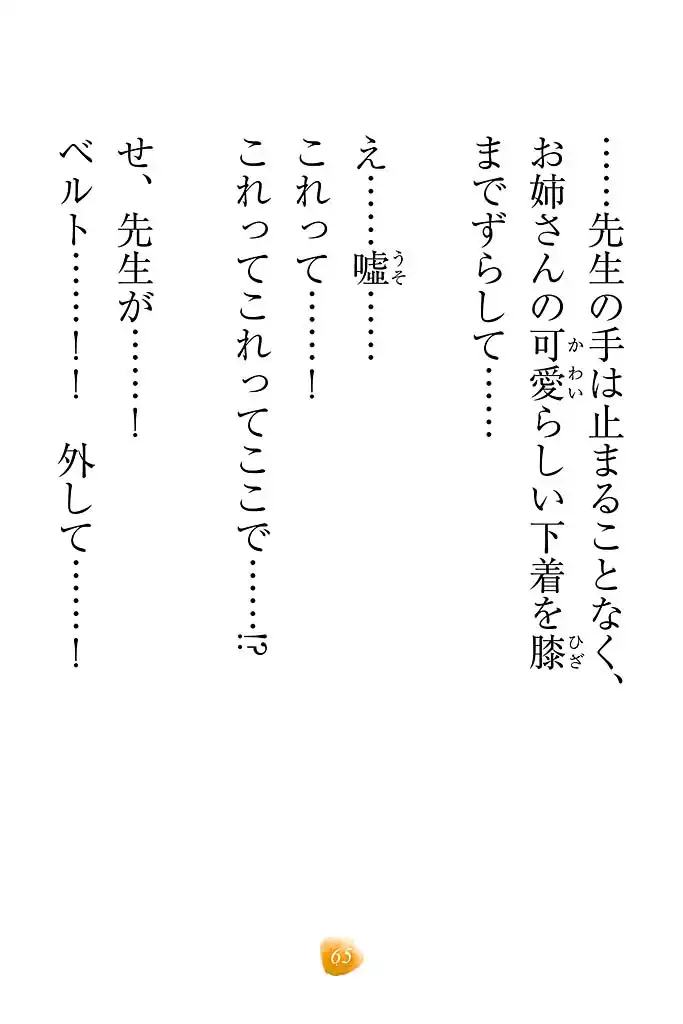 ……先生の手は止まることなく、
お姉さんの可愛らしい下着を膝
までずらして……
え……嘘……
これって……！
これってこれってここで……⁉
せ、先生が……！
ベルト……！！　外して……！
かわい
ひざ
うそ
65